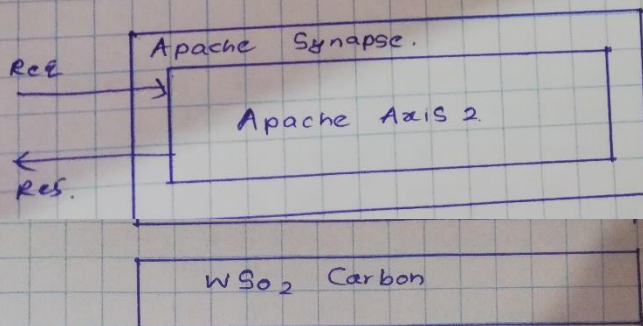 Apache Synapse.
Req
Apache Axis 2
Res.
WSO2 Carbon